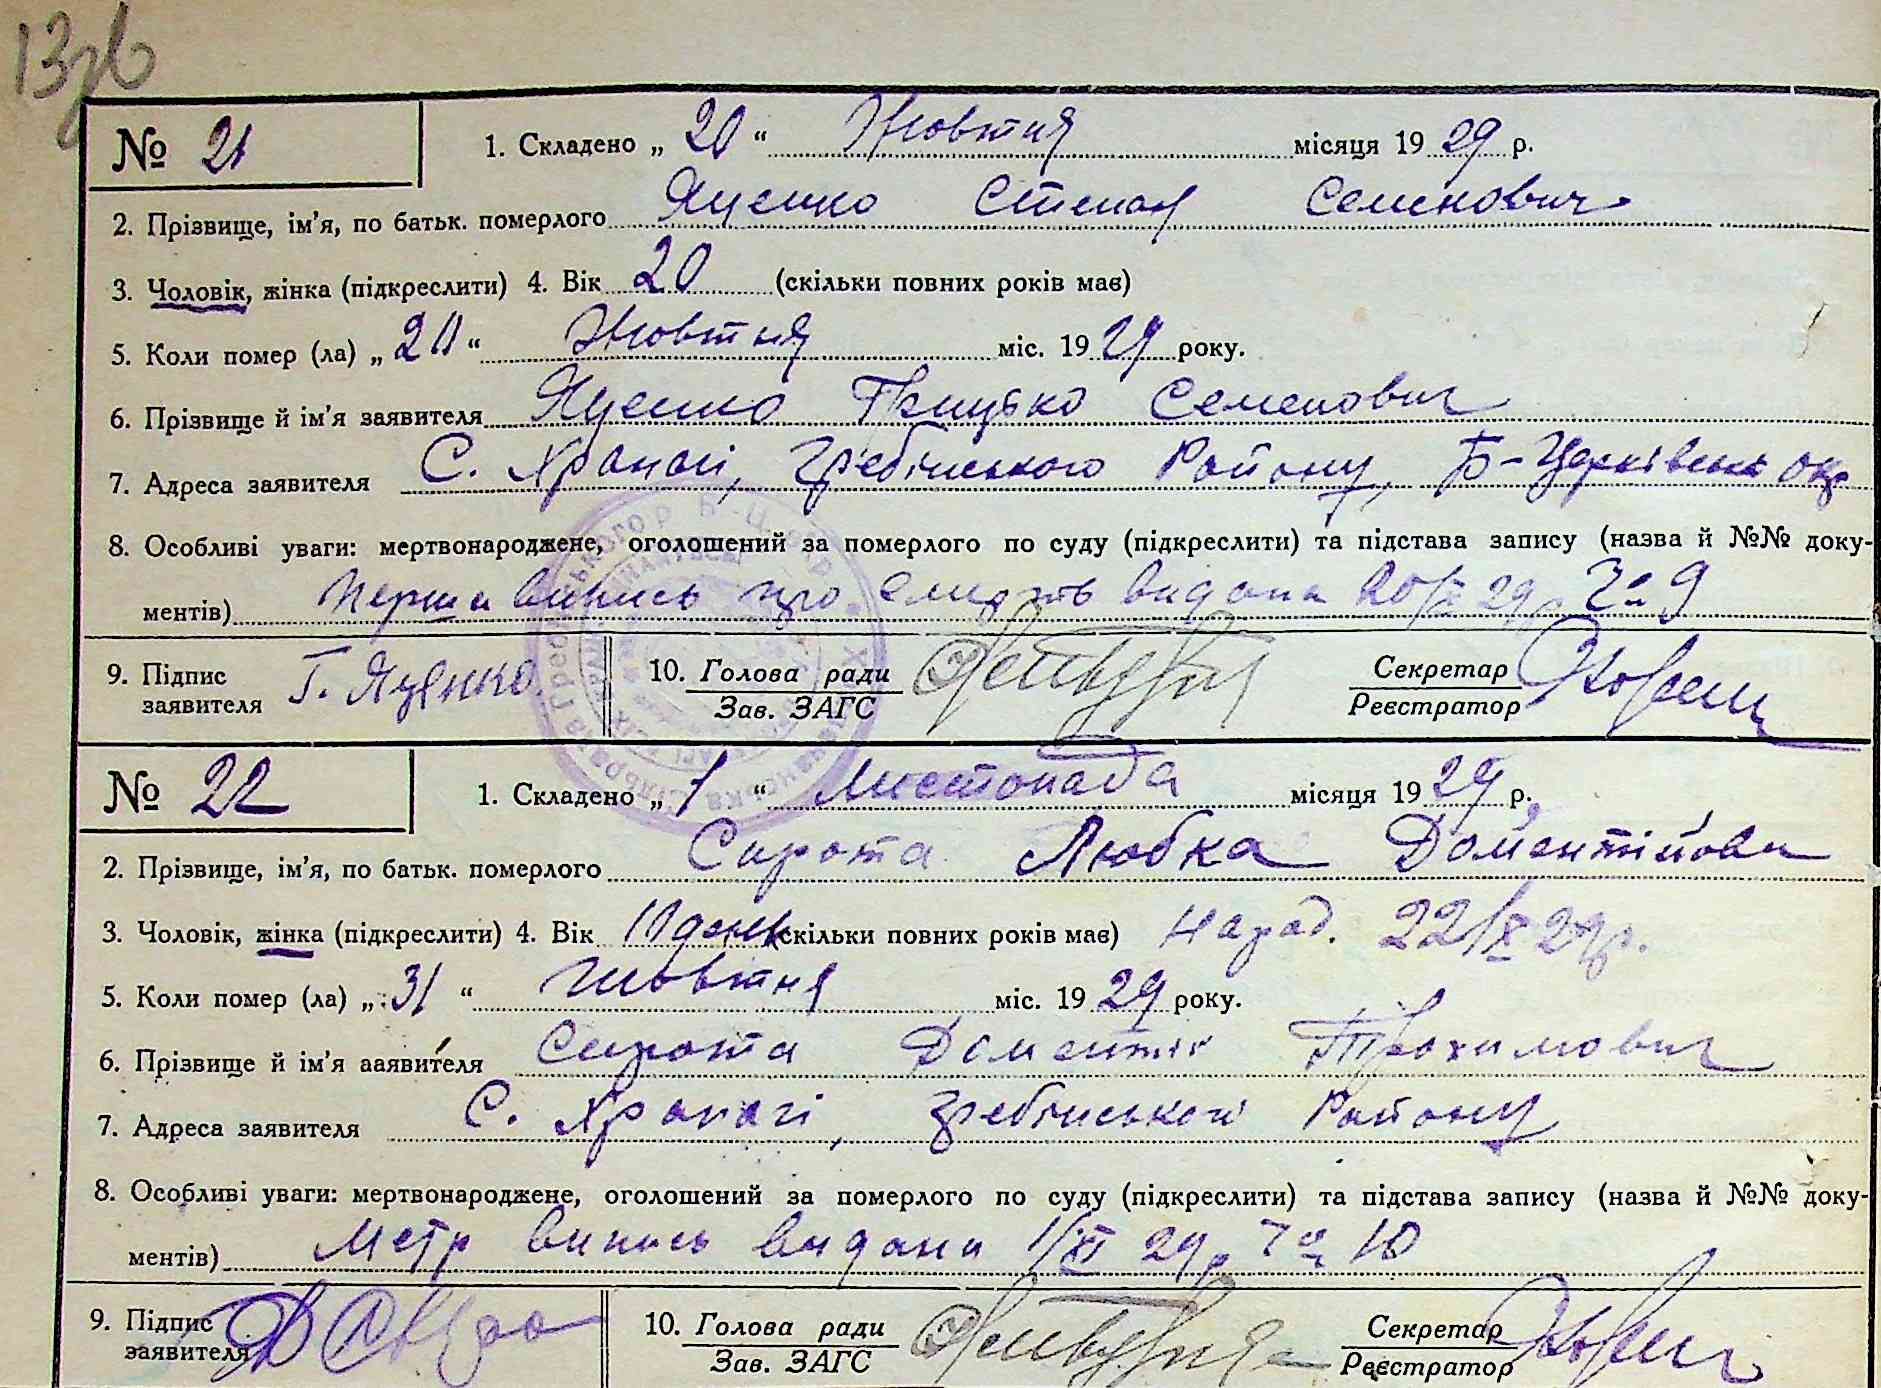 13зв
№ 21
1. Складено „ 20 “ Жовтня місяця 19 29 р.
2. Прізвище, ім'я, по батьк. померлого Яценко Степан Семенович
3. Чоловік, жінка (підкреслити) 4. Вік 20 (скільки повних років має)
5. Коли помер (ла) „ 20 “ Жовтня міс. 19 29 року.
6. Прізвище й ім'я заявителя Яценко Грицько Семенович
7. Адреса заявителя С. Храпачі, Гребінського Району, Б-Церківськ окр
8. Особливі уваги: мертвонароджене, оголошений за померлого по суду (підкреслити) та підстава запису (назва й №№ доку-
ментів) Перша випись про смерть видана 20/X 29 р За 9
9. Підпис заявителя Г. Яценко 10. Голова ради Зав. ЗАГС Секретар Реєстратор
№ 22
1. Складено „ 1 “ Листопада місяця 19 29 р.
2. Прізвище, ім'я, по батьк. померлого Сирота Любка Доментійовн
3. Чоловік, жінка (підкреслити) 4. Вік 10 день (скільки повних років має) Народ. 22/X 29 р.
5. Коли помер (ла) „ 31 “ Жовтня міс. 19 29 року.
6. Прізвище й ім'я заявителя Сирота Доментій Трохимович
7. Адреса заявителя С. Храпачі, Гребінського Району
8. Особливі уваги: мертвонароджене, оголошений за померлого по суду (підкреслити) та підстава запису (назва й №№ доку-
ментів) Метр випись видана 1/XI 29 р За 10
9. Підпис заявителя 10. Голова ради Зав. ЗАГС Секретар Реєстратор